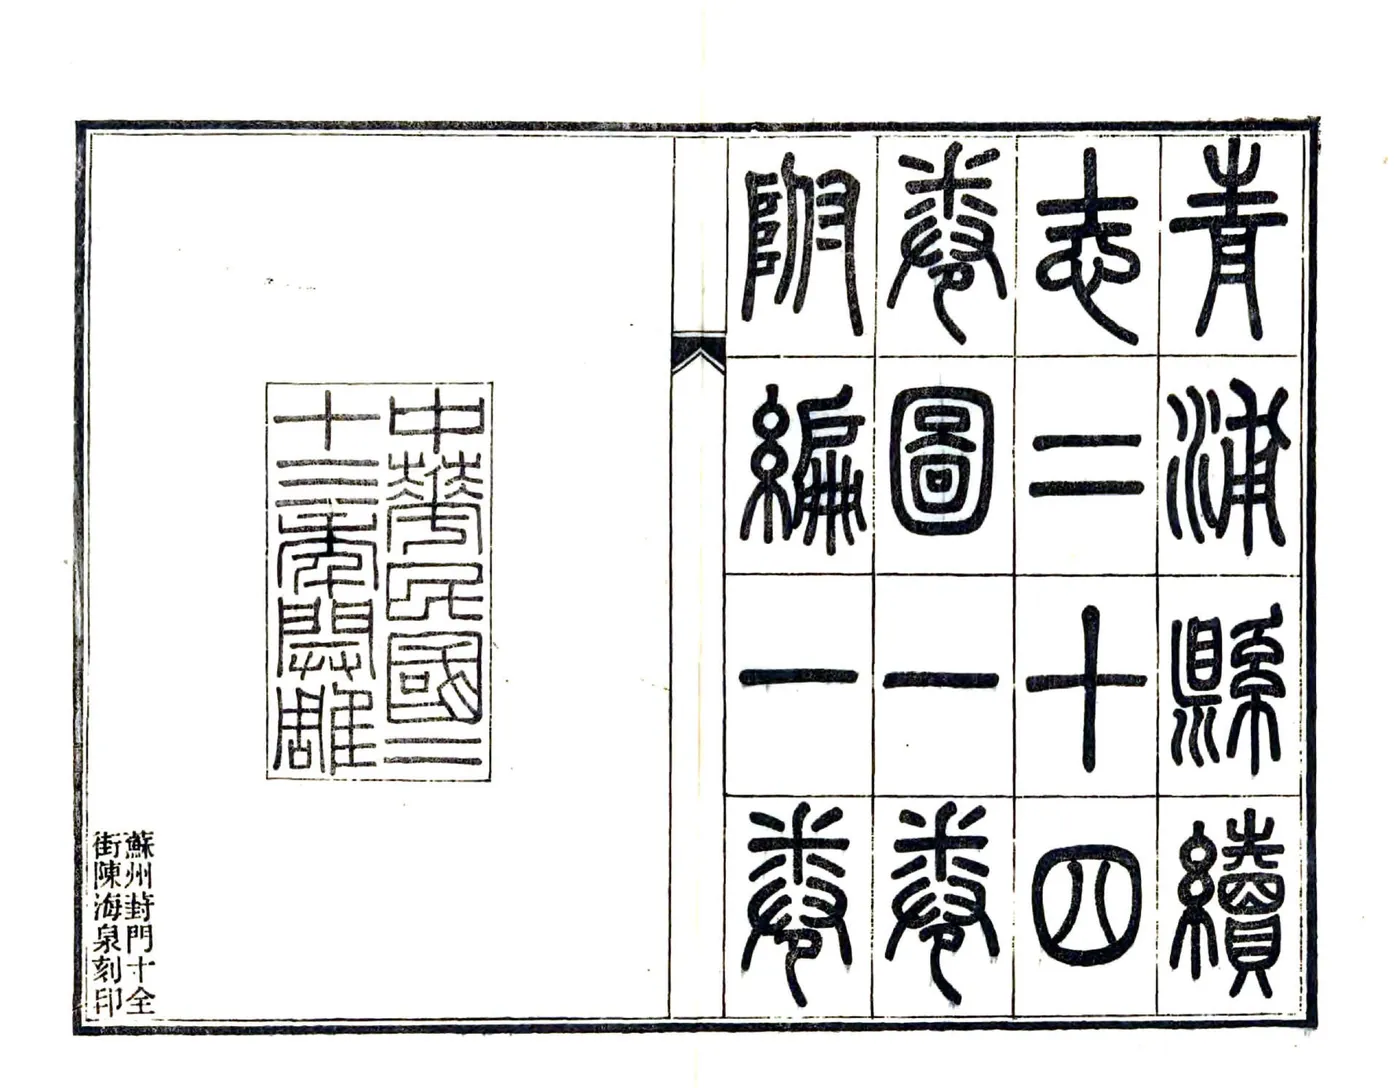 青浦縣續
志二十四
卷圖一卷
附編一卷
中華民國二
十三年開雕
蘇州葑門十全
街陳海泉刻印